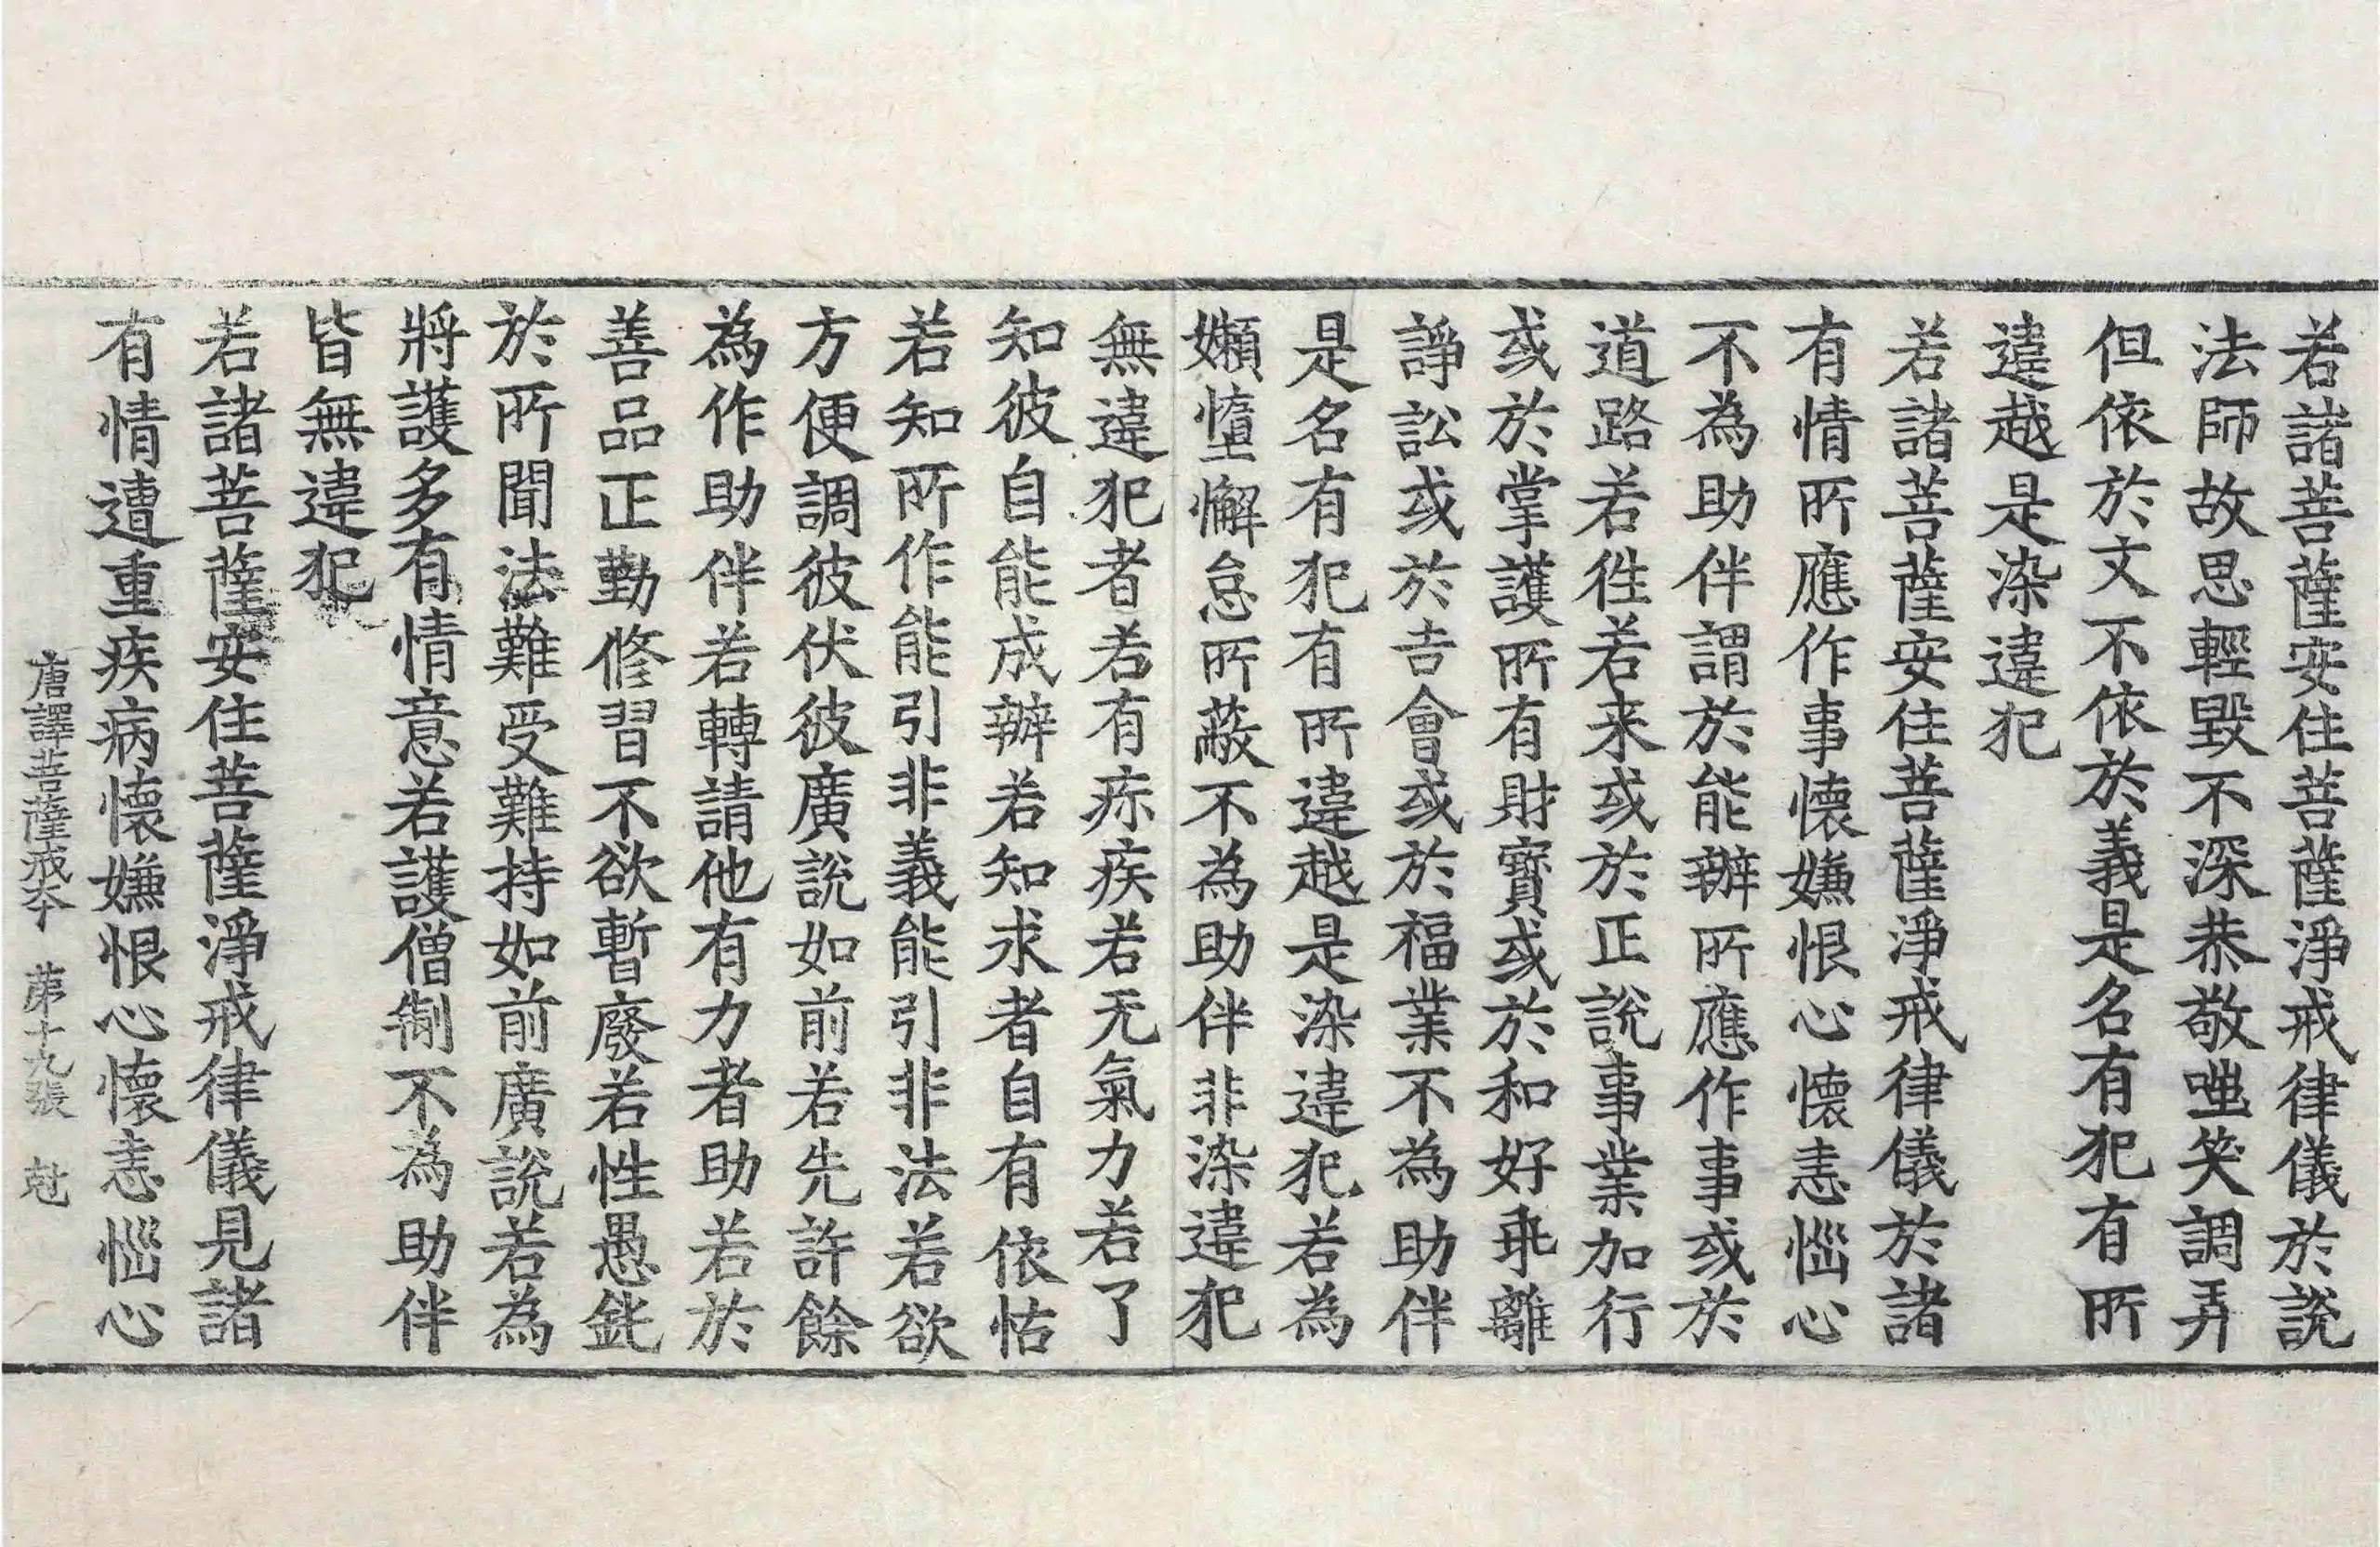 若諸菩薩安住菩薩淨戒律儀於說
法師故思輕毀不深恭敬嗤笑調弄
但依於文不依於義是名有犯有所
違越是染違犯
若諸菩薩安住菩薩淨戒律儀於諸
有情所應作事懷嫌恨心懷恚惱心
不為助伴謂於能辦所應作事或於
道路若往若来或於正說事業加行
或於掌護所有財寶或於和好乖離
諍訟或於吉會或於福業不為助伴
是名有犯有所違越是染違犯若為
嬾憻懈怠所蔽不為助伴非染違犯
無違犯者若有疹疾若无氣力若了
知彼自能成辦若知求者自有依怙
若知所作能引非義能引非法若欲
方便調彼伏彼廣說如前若先許餘
為作助伴若轉請他有力者助若於
善品正勤修習不欲暫廢若性愚鈍
於所聞法難受難持如前廣說若為
將護多有情意若護僧制不為助伴
皆無違犯
若諸菩薩安住菩薩淨戒律儀見諸
有情遭重疾病懷嫌恨心懷恚惱心
唐譯菩薩戒本 第十九張 尅